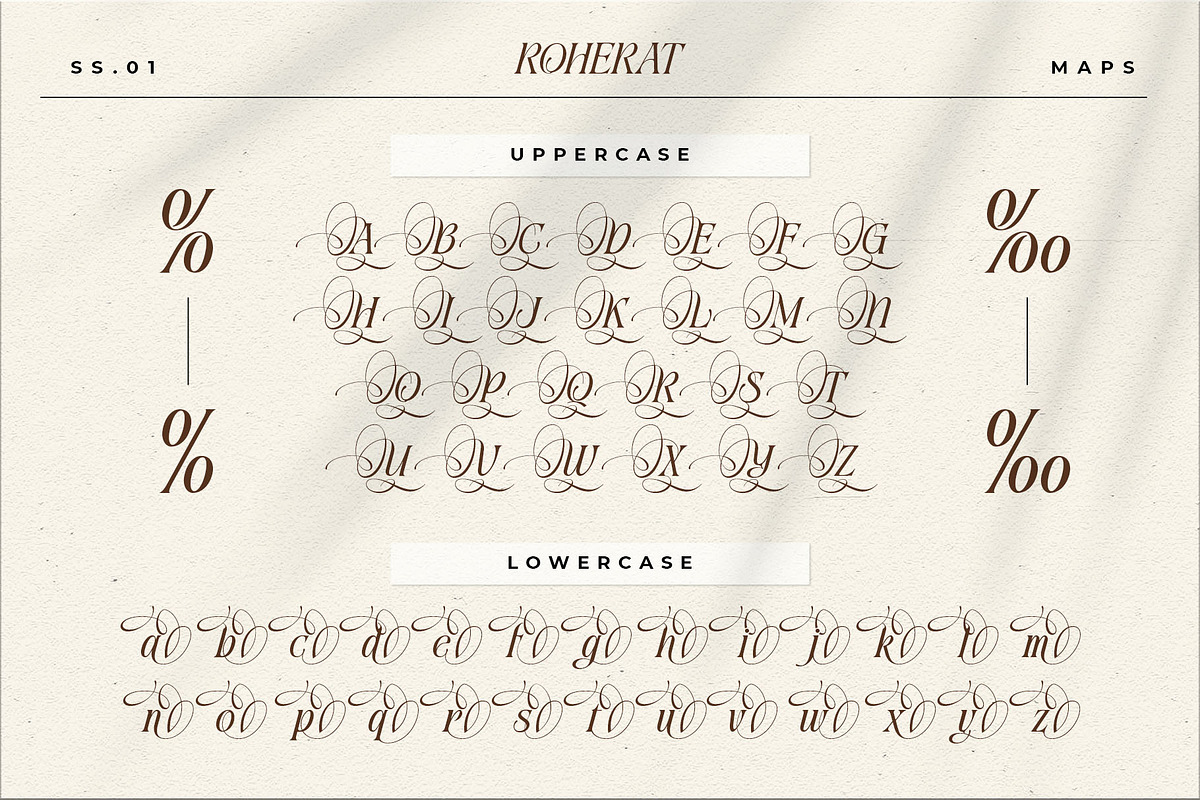 SS.01 ROHERAT MAPS
UPPERCASE
% ‰
A B C D E F G
H I J K L M N
O P Q R S T
U V W X Y Z
% ‰
LOWERCASE
a b c d e f g h i j k l m
n o p q r s t u v w x y z